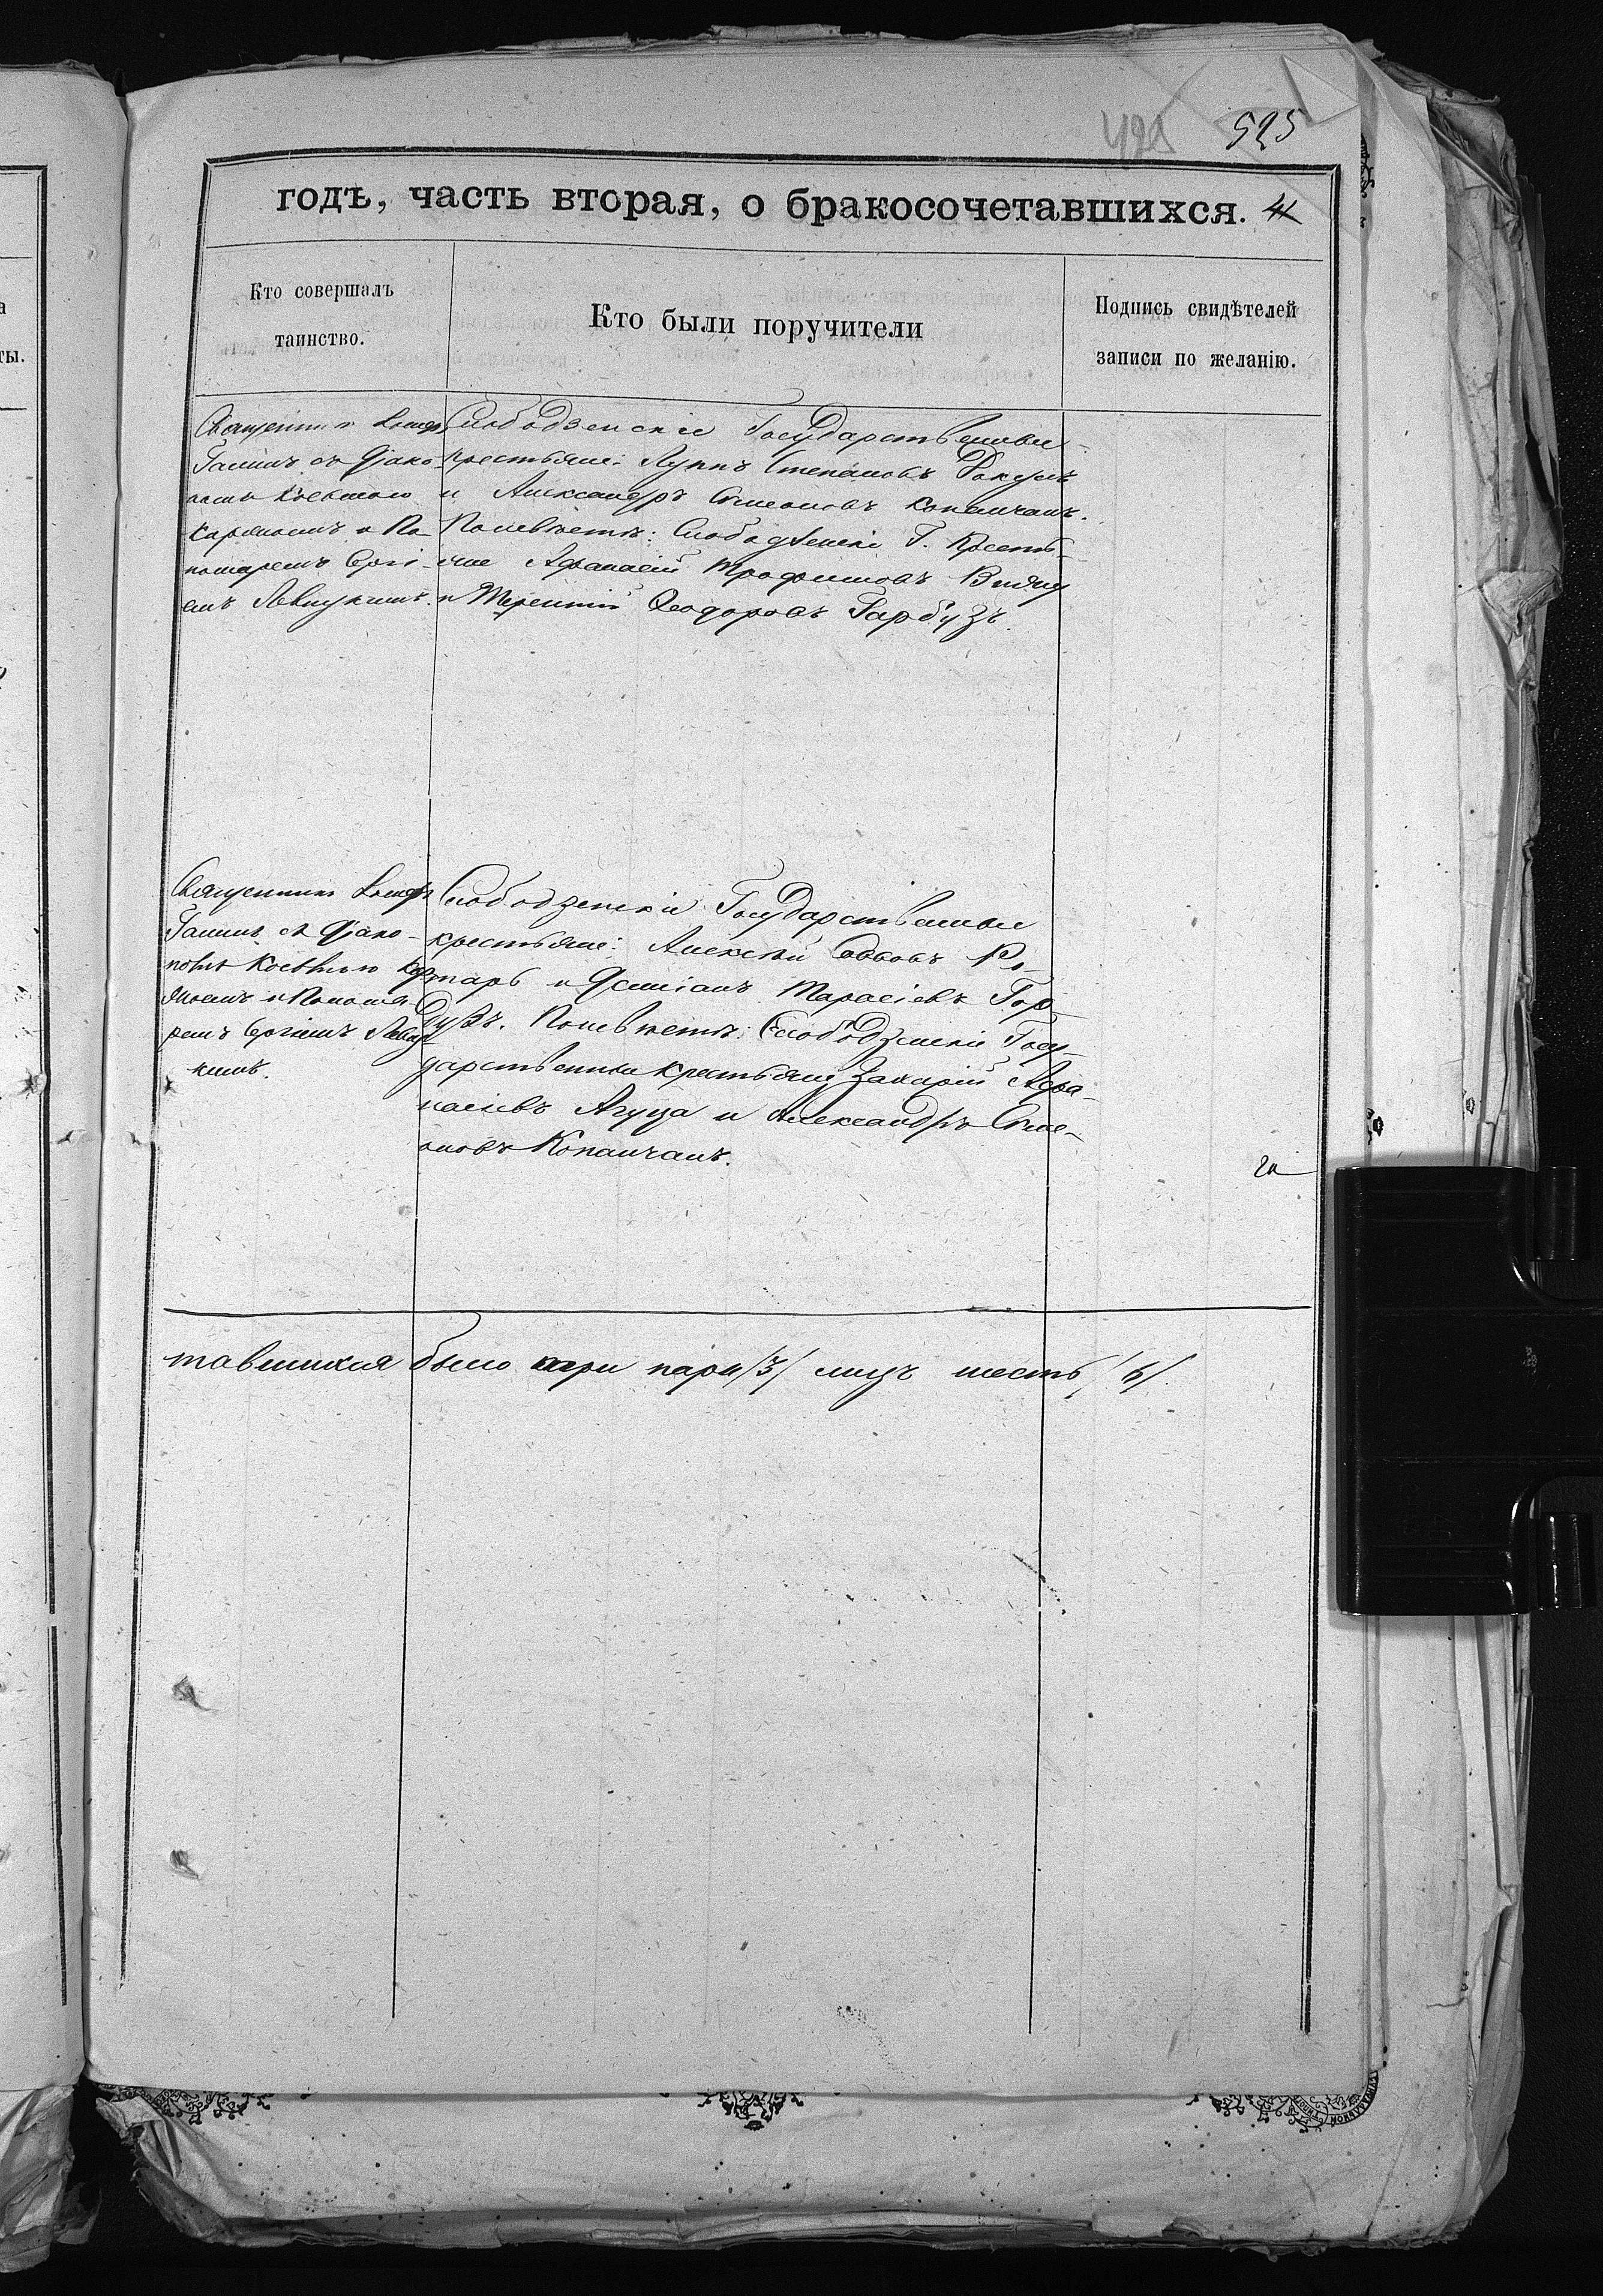 525
годъ, часть вторая, о бракосочетавшихся.
Кто совершалъ
таинство.
Кто были поручители
Подпись свидѣтелей
записи по желанію.
Священникъ
Ганицъ съ Діако-
номъ Косьмою
Каражомъ и По-
номаремъ Сергі-
емъ Левицкимъ.
Слободзенскіе Государственные
крестьяне: Луппъ Степановъ
и Александръ Симеоновъ Копанчанъ.
По невѣстѣ: Слободзенскіе Г. Кресть-
яне Афанасій Трофимовъ
и Терентій Ѳеодоровъ Гарбузъ.
Священникъ
Ганицъ съ Діако-
номъ Косьмою Кар
и Понома-
ремъ Сергіемъ Левиц-
кимъ.
Слободзенскіе Государственные
крестьяне: Алексѣй Саввовъ Ро-
тарь и Даміанъ Тарасіевъ Гор-
дузъ. По невѣстѣ: Слободзенскіе Госу-
дарственные крестьяне Захарій Афа-
насіевъ Агуца и Александръ Симе-
оновъ Копанчанъ.
тавшихся было три пары /3/ лицъ шесть /6/.